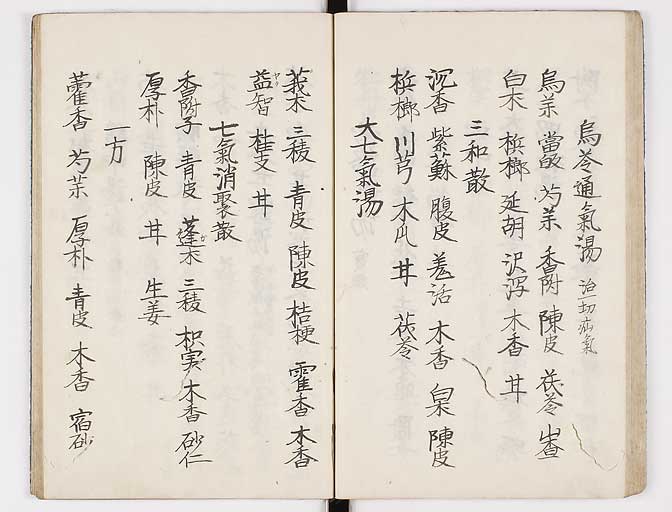 烏苓通氣湯 治一切疝氣
烏茱 當皈 芍茱 香附 陳皮 茯苓 山査
白朮 梹榔 延胡 沢瀉 木香 甘
三和散
沉香 紫蘇 腹皮 羌活 木香 白朮 陳皮
梹榔 川芎 木瓜 甘 茯苓
大七氣湯
莪朮 三稜 青皮 陳皮 桔梗 霍香 木香
益智 桂支 甘
七氣消聚散
香附子 青皮 蓬朮 三稜 枳実 木香 砂仁
厚朴 陳皮 甘 生姜
一方
藿香 芍茱 厚朴 青皮 木香 宿砂